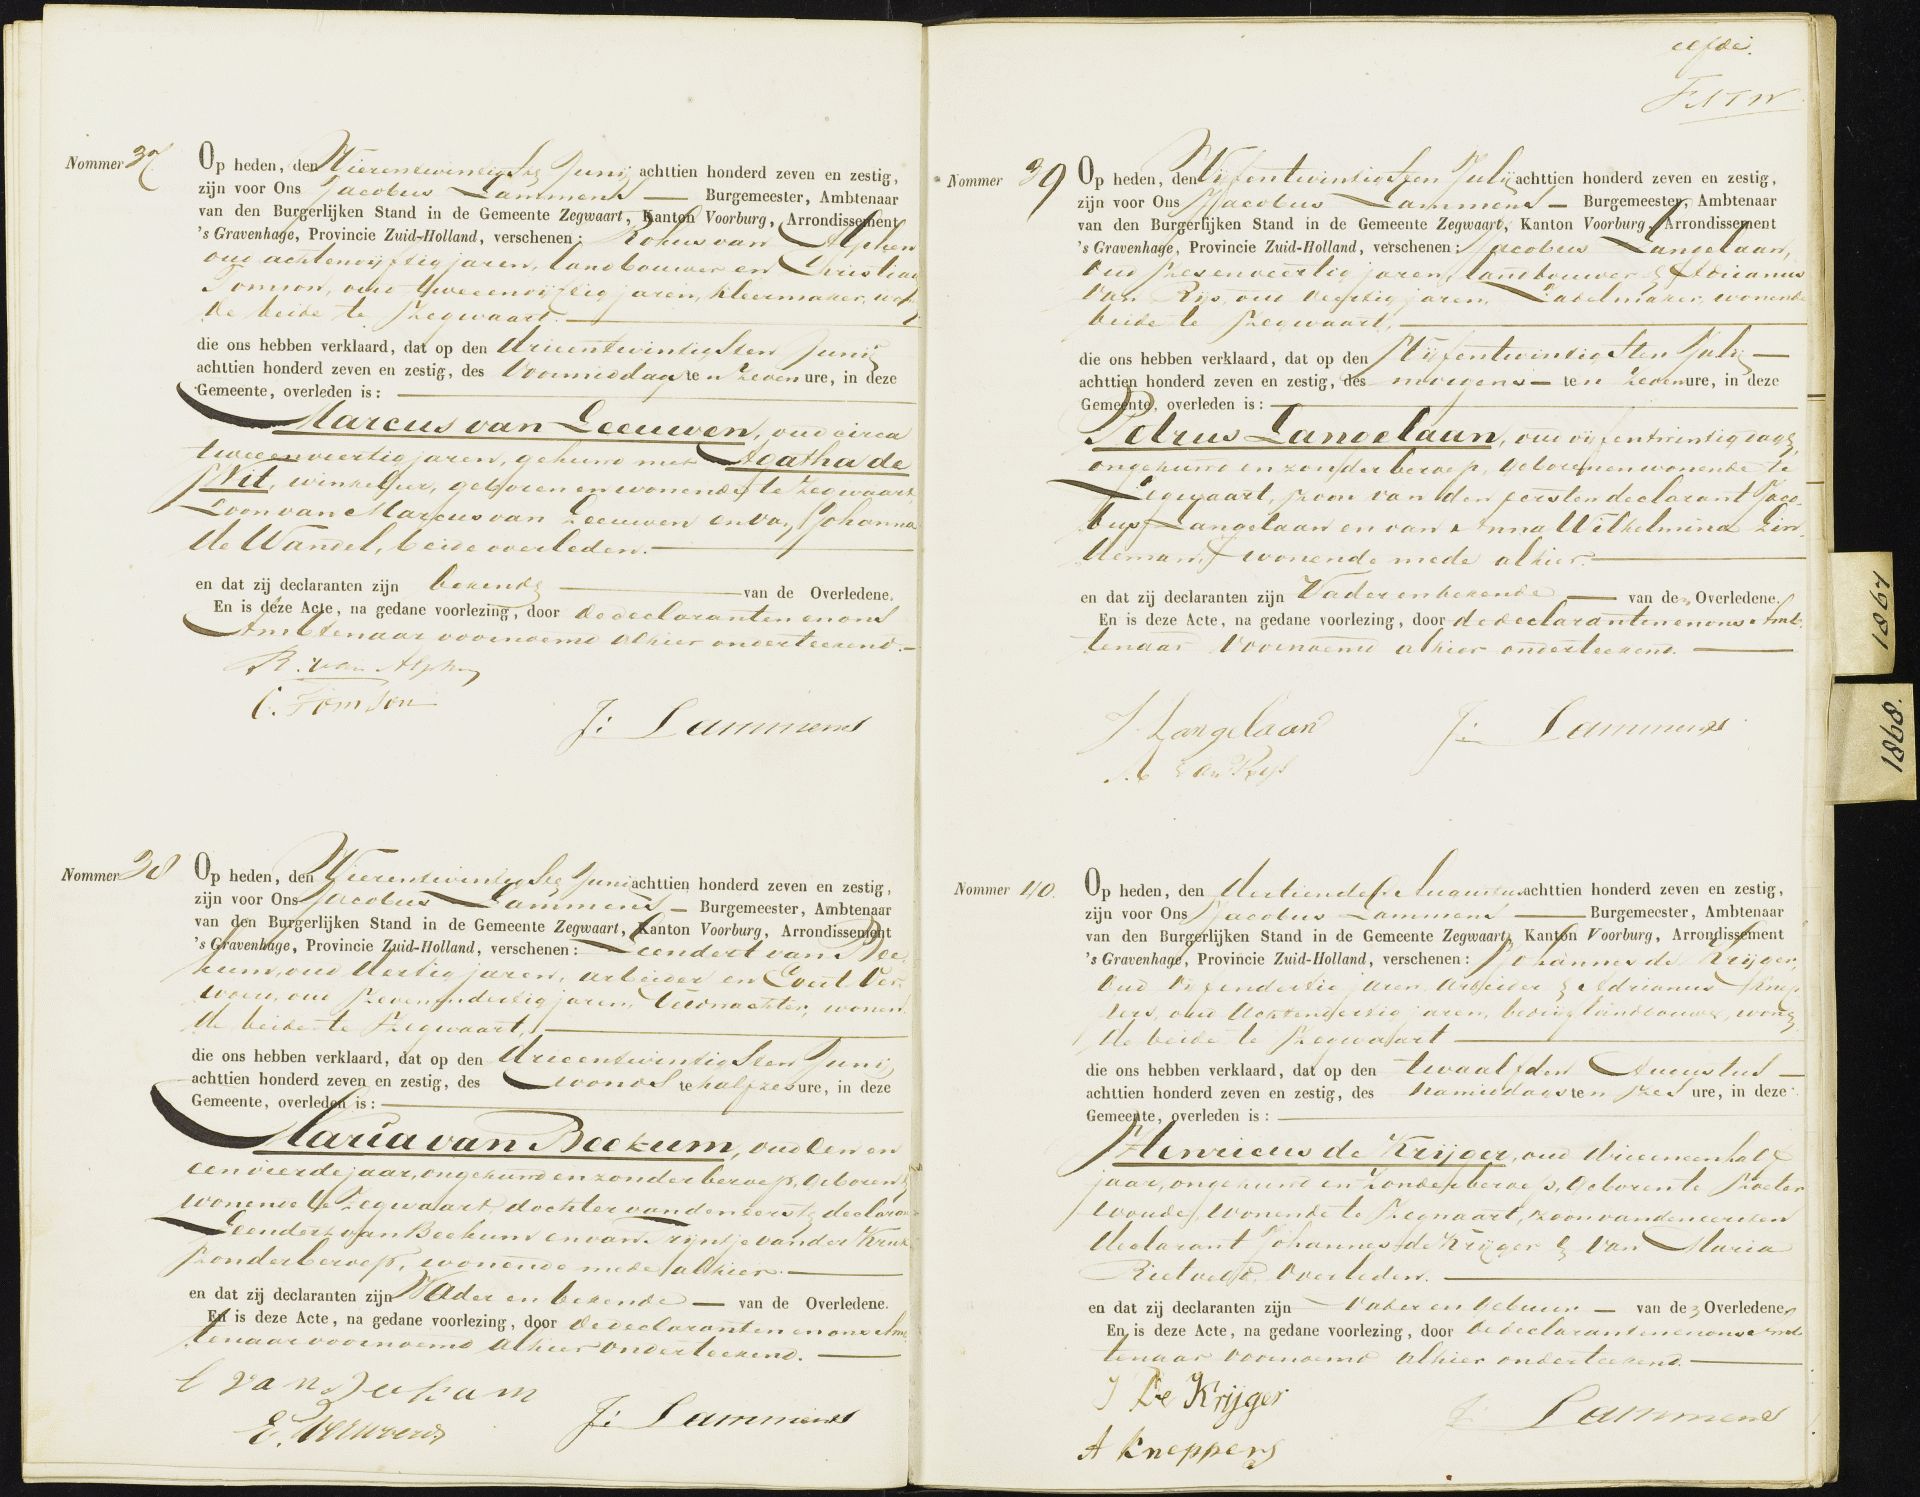 Nommer 37.
Op heden, den Vierentwintigste Junij achttien honderd zeven en zestig,
zijn voor Ons Jacobus Lammens — Burgemeester, Ambtenaar
van den Burgerlijken Stand in de Gemeente Zegwaart, Kanton Voorburg, Arrondissement
's Gravenhage, Provincie Zuid-Holland, verschenen: Rokus van Alphen
oud achtenvijftig jaren, landbouwer en Christiaan
Tomson, oud tweeenvijftig jaren, kleermaker, wonen
de beide te Zegwaart. —
die ons hebben verklaard, dat op den drieentwintigsten Junij
achttien honderd zeven en zestig, des voormiddags te n zeven ure, in deze
Gemeente, overleden is: —
Marcus van Leeuwen, oud circa
tweeenveertig jaren, gehuwd met Agatha de
Wit, winkelier, geboren en wonende te Zegwaart,
Zoon van Marcus van Leeuwen en van Johanna
de Wandel, beide overleden. —
en dat zij declaranten zijn bekende — van de Overledene.
En is deze Acte, na gedane voorlezing, door de declaranten en ons
Ambtenaar voornoemd alhier onderteekend. —
R. van Alphen
C. Tomson
J: Lammens
Nommer 38
Op heden, den Vierentwintigste Junij achttien honderd zeven en zestig,
zijn voor Ons Jacobus Lammens — Burgemeester, Ambtenaar
van den Burgerlijken Stand in de Gemeente Zegwaart, Kanton Voorburg, Arrondissement
's Gravenhage, Provincie Zuid-Holland, verschenen: Leendert van Bee-
kum, oud dertig jaren, arbeider en Evert Ver-
woerd, oud zevenendertig jaren, veldwachter, wonen
de beide te Zegwaart, —
die ons hebben verklaard, dat op den drieentwintigsten Junij
achttien honderd zeven en zestig, des avonds te half zes ure, in deze
Gemeente, overleden is: —
Maria van Beekum, oud een en
een vierde jaar, ongehuwd en zonder beroep, geboren &
wonende te Zegwaart, dochter van den eerste declarant
Leendert van Beekum en van Trijntje van der Kruk
zonder beroep, wonende mede alhier. —
en dat zij declaranten zijn Vader en bekende — van de Overledene.
En is deze Acte, na gedane voorlezing, door de declaranten en ons Amb
tenaar voornoemd alhier onderteekend. —
l van Beekum
E. Verwoerd
J: Lammens
elfde.
Nommer 39
Op heden, den Vijfentwintigsten Julij achttien honderd zeven en zestig,
zijn voor Ons Jacobus Lammens — Burgemeester, Ambtenaar
van den Burgerlijken Stand in de Gemeente Zegwaart, Kanton Voorburg, Arrondissement
's Gravenhage, Provincie Zuid-Holland, verschenen: Jacobus Langelaan,
oud zesenveertig jaren, landbouwer & Adrianus
van Rijs, oud veertig jaren, Zadelmaker, wonende
beide te Zegwaart, —
die ons hebben verklaard, dat op den Vijfentwintigsten Julij —
achttien honderd zeven en zestig, des morgens — te n zeven ure, in deze
Gemeente, overleden is: —
Petrus Langelaan, oud vijfentwintig dagen,
ongehuwd en zonder beroep, geboren en wonende te
Zegwaart, zoon van den eersten declarant Jaco-
bus Langelaan en van Anna Wilhelmina Lin-
deman, wonende mede alhier. —
en dat zij declaranten zijn Vader en bekende — van den Overledene.
En is deze Acte, na gedane voorlezing, door de declaranten en ons Amb-
tenaar voornoemd alhier onderteekend. —
J Langelaan
A van Rijs
J: Lammens
Nommer 40.
Op heden, den dertiende Augustus achttien honderd zeven en zestig,
zijn voor Ons Jacobus Lammens — Burgemeester, Ambtenaar
van den Burgerlijken Stand in de Gemeente Zegwaart, Kanton Voorburg, Arrondissement
's Gravenhage, Provincie Zuid-Holland, verschenen: Johannes de Krijger,
oud vijfendertig jaren, arbeider & Adrianus Knep-
pers, oud achtendertig jaren, landbouwer, wonen
de beide te Zegwaart —
die ons hebben verklaard, dat op den twaalfden Augustus —
achttien honderd zeven en zestig, des namiddags te n zes ure, in deze
Gemeente, overleden is: —
Henricus de Krijger, oud drieeneenhalf
jaar, ongehuwd en zonder beroep, geboren te Zoeter
woude, wonende te Zegwaart, zoon van den eersten
declarant Johannes de Krijger & van Maria
Rietveld, overleden. —
en dat zij declaranten zijn Vader en gebuur — van den Overledene.
En is deze Acte, na gedane voorlezing, door de declaranten en ons Amb
tenaar voornoemd alhier onderteekend. —
J De Krijger
A Kneppers
J: Lammens
1867
1868.